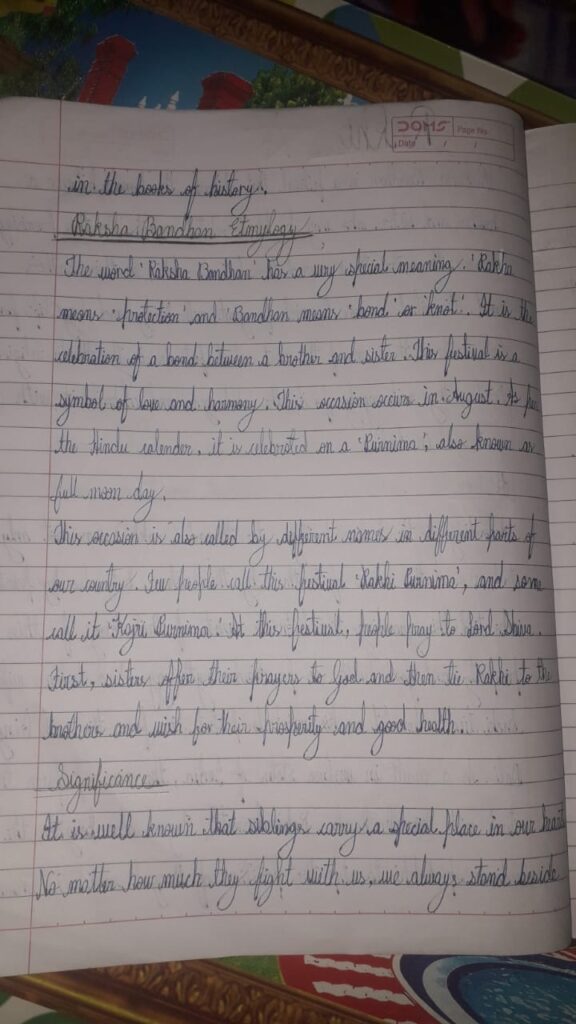 DOMS
Page No.
Date / /
in the books of history.
Raksha Bandhan Etmylogy
The word 'Raksha Bandhan' has a very special meaning. 'Raksha
means 'protection' and 'Bandhan means 'bond' or 'knot'. It is the
celebration of a bond between a brother and sister. This festival is a
symbol of love and harmony. This occasion occurs in August. As per
the Hindu calender, it is celebrated on a 'Purnima', also known as
full moon day.
This occasion is also called by different names in different parts of
our country. Few people call this festival 'Rakhi Purnima', and some
call it 'Kajri Purnima'. At this festival, people pray to Lord Shiva.
First, sisters offer their prayers to God and then tie Rakhi to the
brothers and wish for their prosperity and good health.
Significance
It is well known that siblings carry a special place in our heart
No matter how much they fight with us, we always stand beside